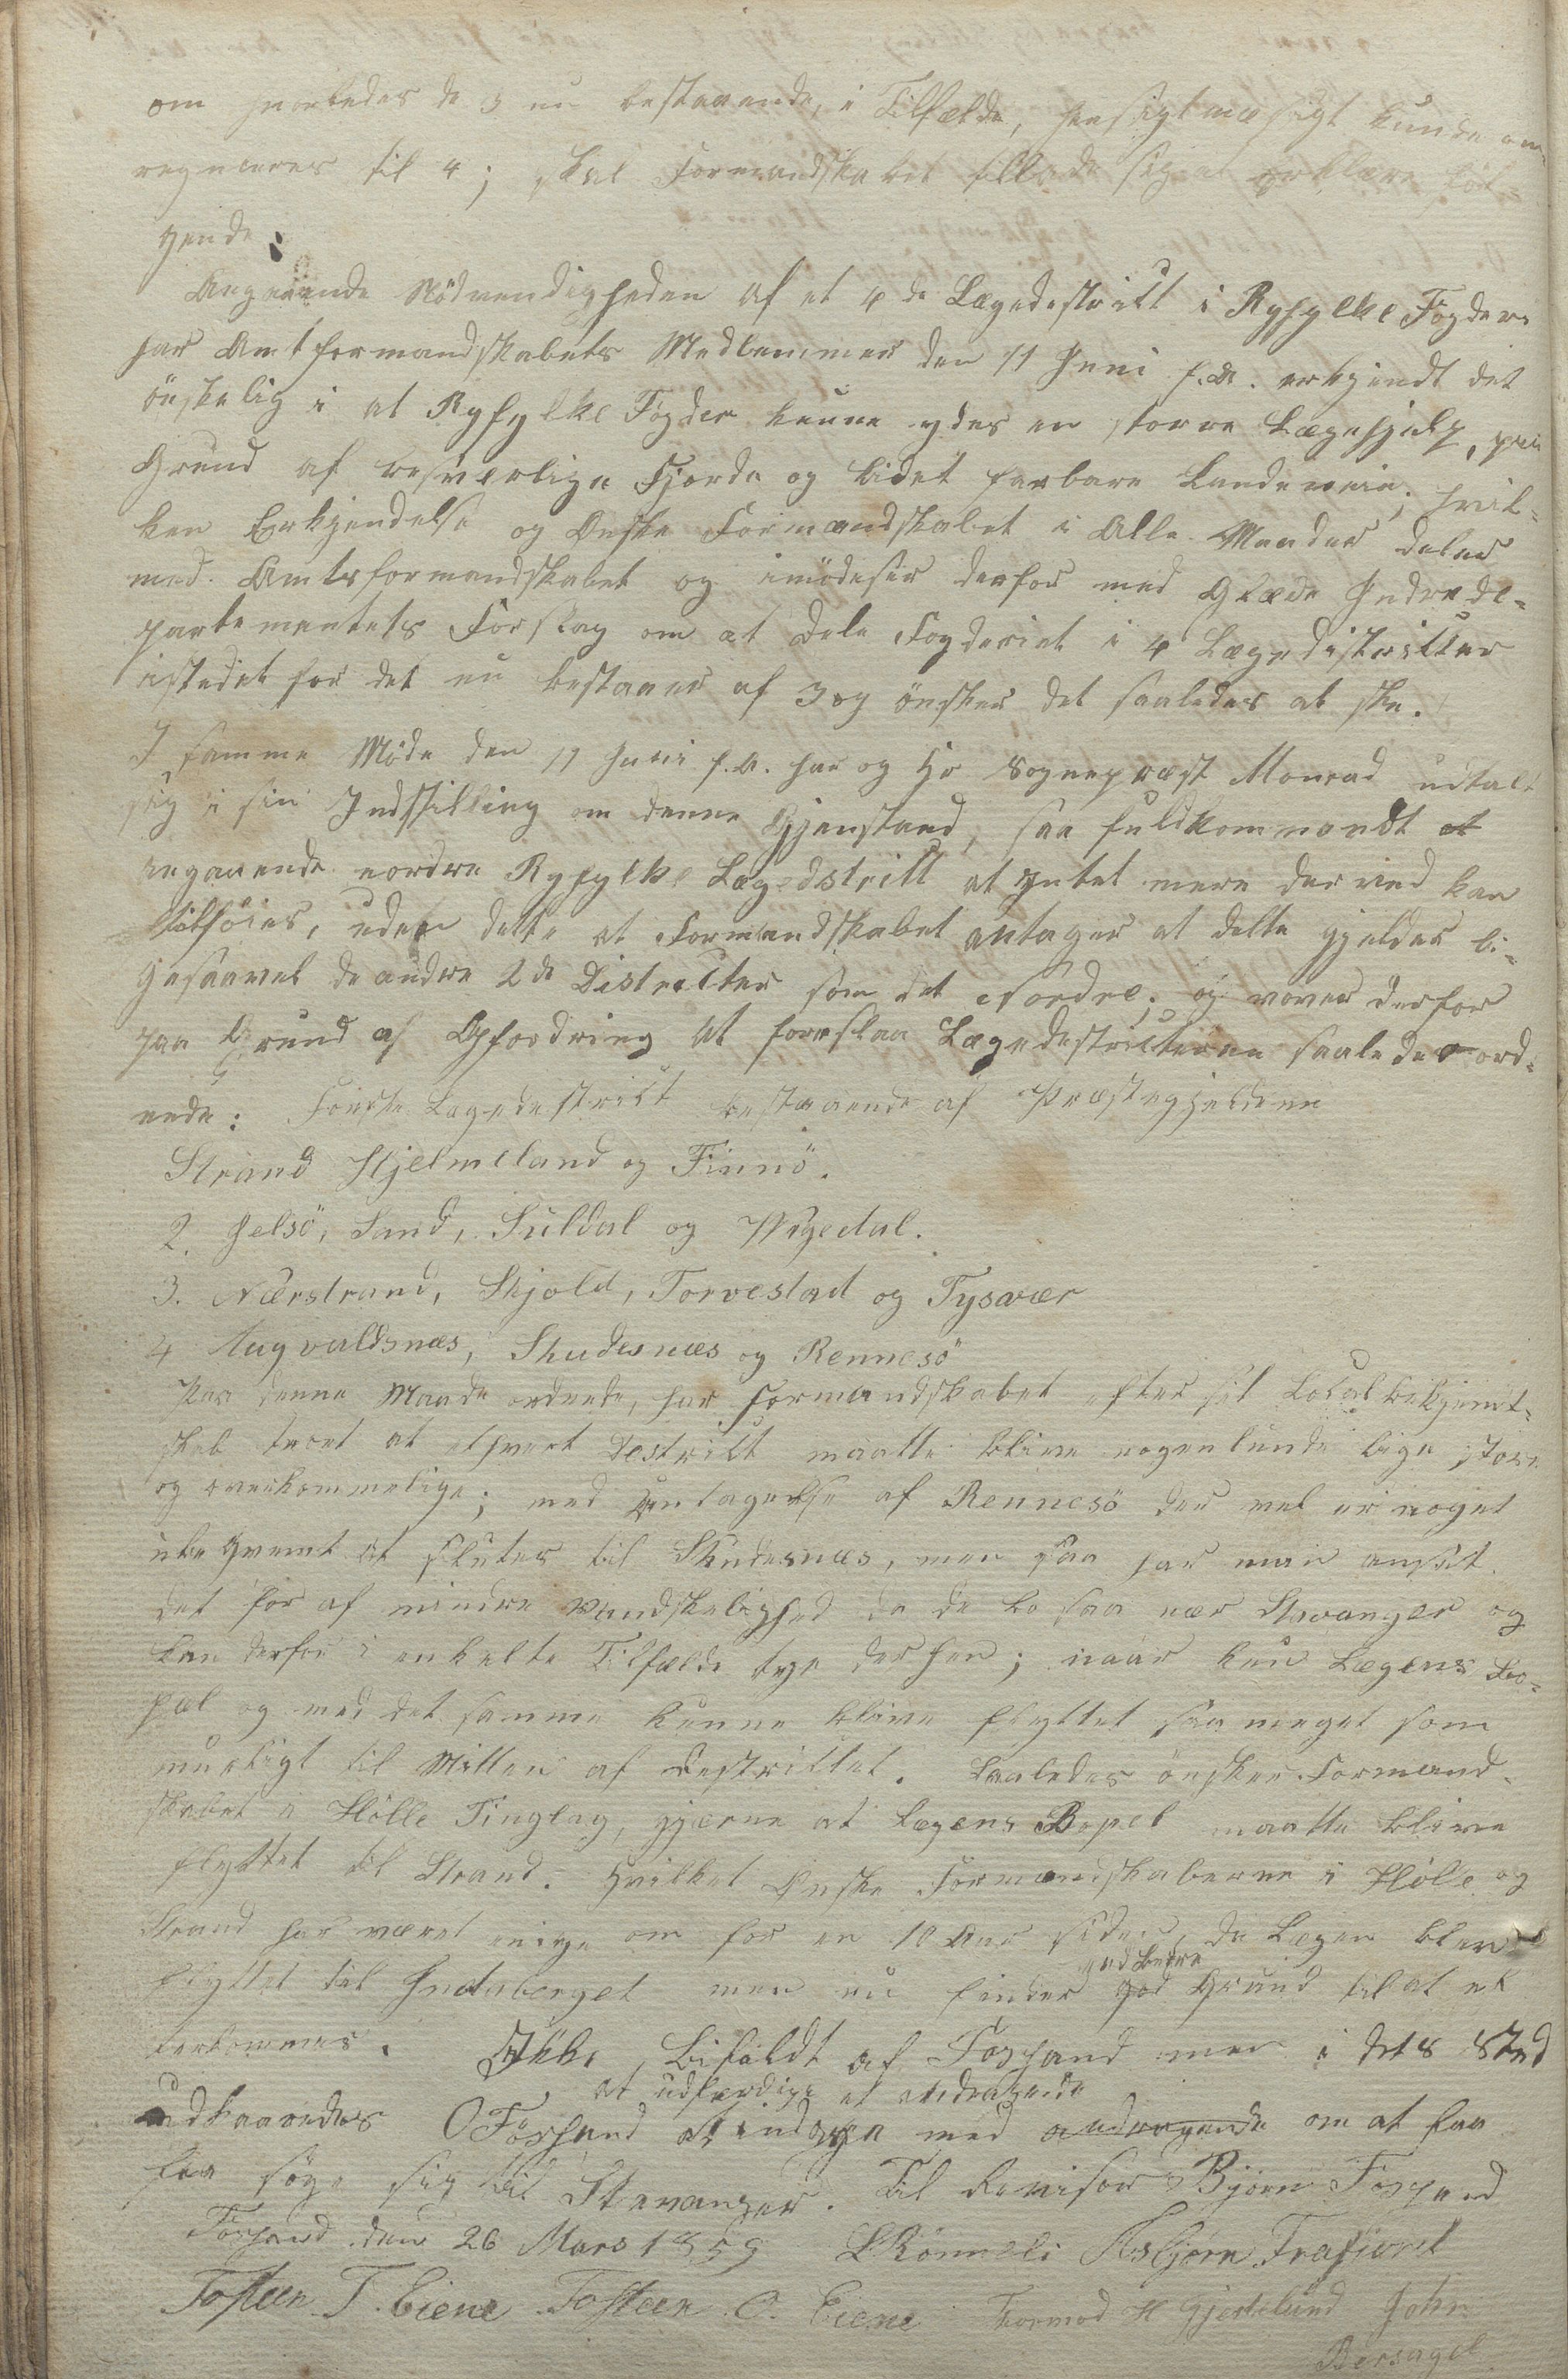 om hvorledes de 3 nu bestaaende, i Tilfælde, hensigtmæsigt kunde om
reguleres til 4; skal Formandskabet tillade sig at erklære föl-
gende:
Angaaende Nödvendigheden af et 4de Lægedestrikt i Ryfylke Fogderi
har Amtformandskabets Medlemmer den 11 Juni f.A. erkjendt det
önskelig i at Ryfylke Fogderi kunne ydes en storre Lægehjelp, paa
Grund af besværlige Fjorde og lidet farbare Landeveie; hvil-
ken Erkjendelse og Ønske Formandskabet i Alle Maader deler
med Amtsformandskabet og imödeser derfor med Glæde Indrede-
partementets Forslag om at dele Fogderiet i 4 Lægedistrikter
istedet for det nu bestaaer af 3 og önsker det saaledes at ske.
I samme Möde den 11 Juni f.A. har og Hr Sognepræst Monrad udtalt
sig i sin Indstilling om denne Gjenstand, saa fuldkommendt at
angaaende nordre Ryfylke Lægedstrikt at Intet mere derved kan
tilföies, uden dette at Formandskabet antager at dette gjelder li-
gesaavel de andre 2de Districter som det Nordre; og vover derfor
paa Grund af Opfordring at foreslaa Lægedestricterne saaledes ord-
nede: Förste Lægedestrikt bestaaende af Præstegjeldene
Strand Hjelmeland og Finnö.
2. Jelsö, Sand, Suldal og Wigedal.
3. Nærstrand, Skjold, Torvestad og Tysvær
4 Augvaldsnæs, Skudesnæs og Rennesö
Paa denne Maade ordnede, har Formandskabet efter sit Localbekjendt-
skab troet at ethvert Destrikt maatte blive nogenlunde lige store
og overkommelige; med Untagelse af Rennesö der vel er noget
ubeqvemt at slutes til Skudesnæs, men saa har man anseet
det for af mindre Vandskelighed da de bo saa nær Stavanger og
kan derfor i enkelte Tilfælde tye derhen; naar kun Lægens Bo-
pæl og med det samme kunne blive flyttet saa meget som
mueligt til Mitten af Destriktet. Saaledes önsker Formand-
skabet i Hölle Tinglag, gjærne at Lægens Bopel maatte blive
flyttet til Strand. Hvilket Ønske Formandskaberne i Hölle og
Strand har været enige om for en 10 Aar siden, da Lægen blev
flyttet til men nu finder god Grund til at
Ikke bifaldt af Fossand men i dets Sted
at udfærdige et Andragende
Fossand med andragende om at faa
söge sig til Stavanger. Til Revisor Björn Fossand
Fossand den 26 Mars 1859 L Rönneli Asbjörn Frafjord
Tosteen T. Eiene Tosteen O. Eiene Tormod H Gjertelund John
Bersagel